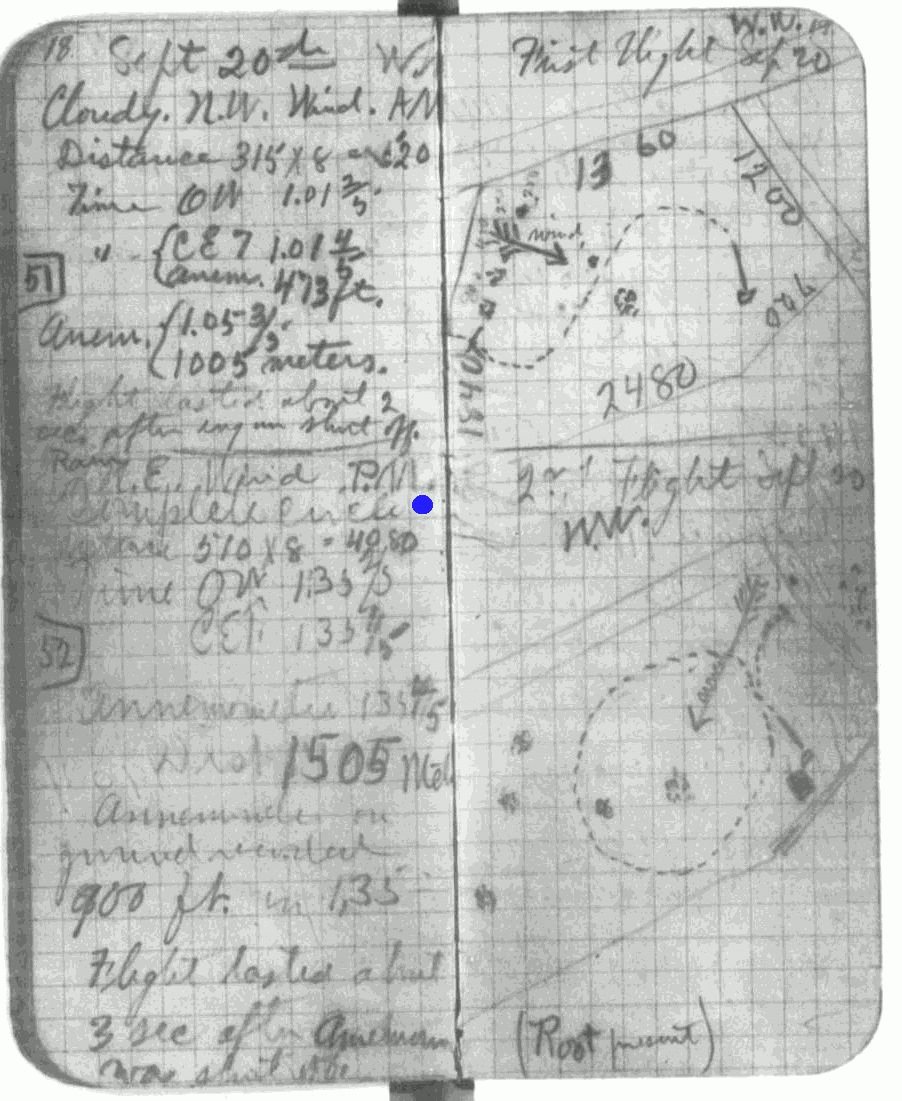 18 Sept 20th W.
Cloudy. N.W. Wind. AM
Distance 315 X 8 = 2520
Time OW 1.01 3/5
" {CET 1.01 4/5
51 anem. 473 ft.
Anem. {1.05 3/5
(1005 meters.
Flight lasted about 2
sec. after engine shut off.
N.E. Wind P.M.
Complete Circle
510 X 8 = 4080
Time OW 1.35 2/5
CET. 1.35 4/5
52
Annemometer 1.35 4/5
1505
Annemometer on
ground recorded
900 ft. in 1,35
Flight lasted about
3 sec after Anemom
was shut off.
First Flight W.W.
Sep 20
13 60
1200
wind.
760
2480
1840
2nd Flight Sept 20
W.W.
wind
(Root present)